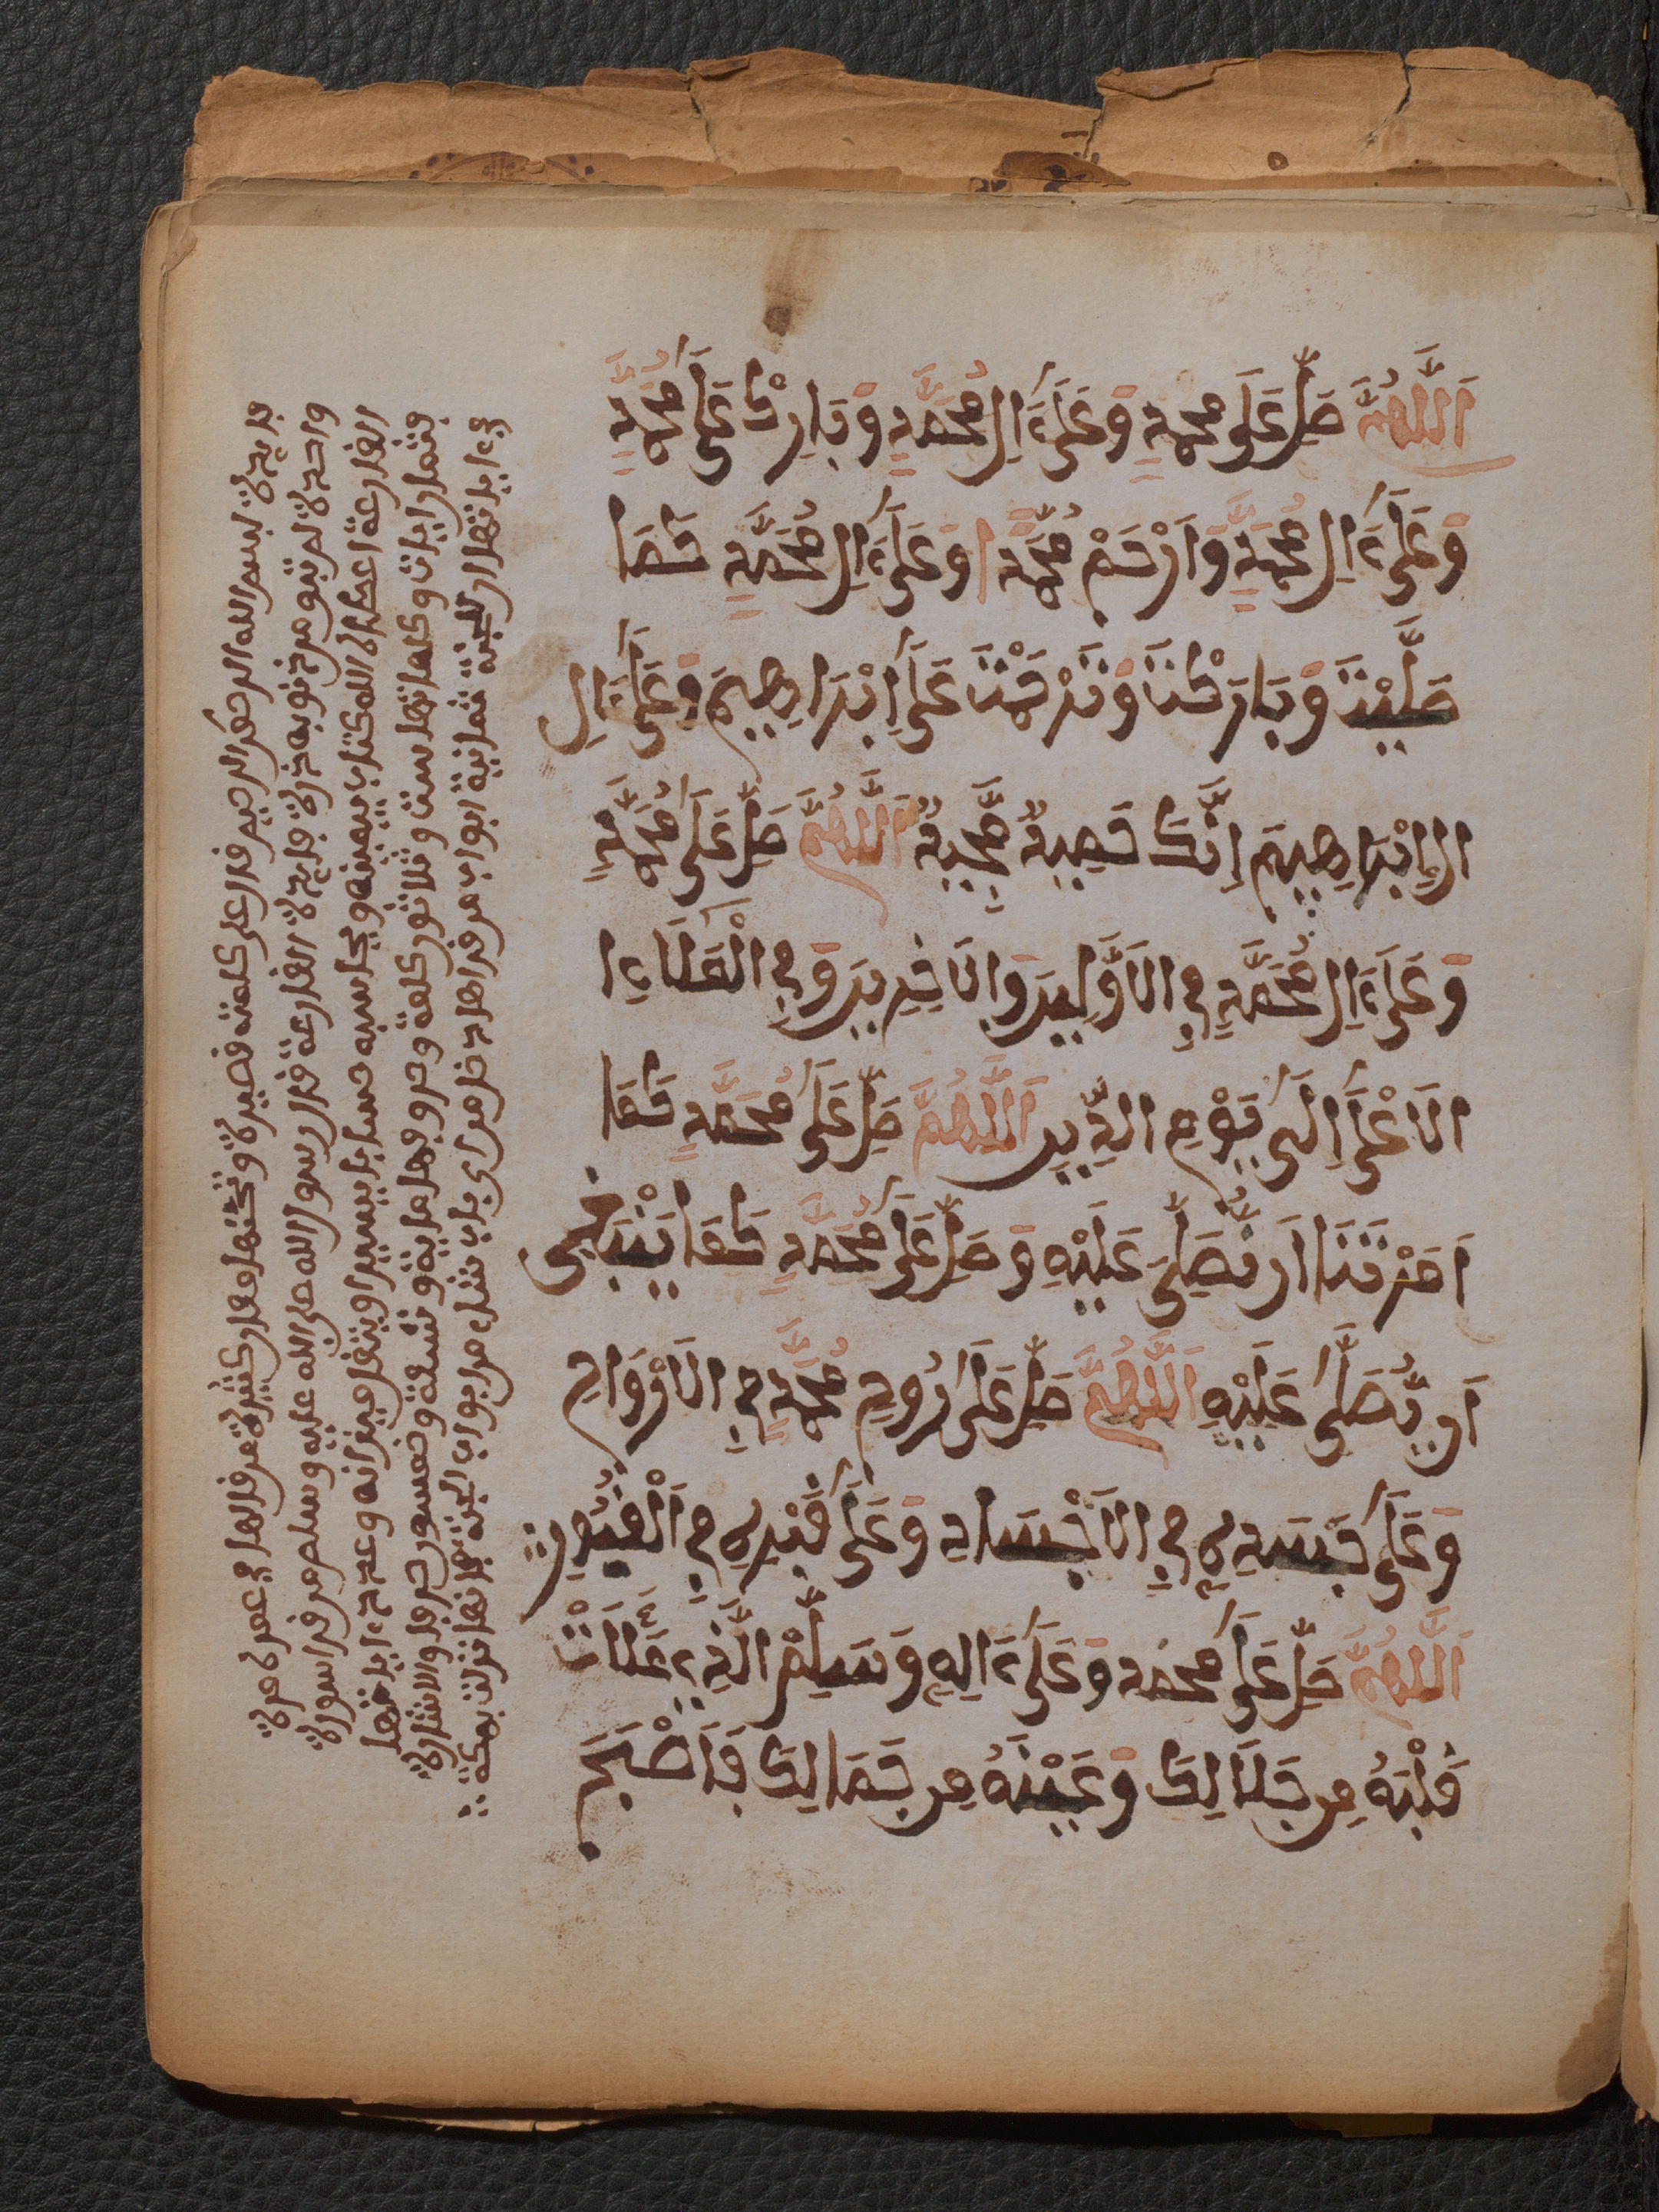 اَللَّهُمَّ صَلِّ عَلَى محمدٍ وَعَلَىٰ ءَالِ مُحَمَّدٍ وَبَارِكْ عَلَىٰ مُحَمَّدٍ
وَعَلَىٰ ءَالِ مُحَمَّدٍ وَارْحَمْ مُحَمَّدًا وَعَلَىٰ ءَالِ مُحَمَّدٍ كَمَا
صَلَّيْتَ وَبَارَكْتَ وَتَرَحَّمْتَ عَلَىٰ اِبْرَاهِيمَ وَعَلَىٰ ءَالِ
اِبْرَاهِيمَ اِنَّكَ حَمِيدٌ مَّجِيدٌ اَللَّهُمَّ صَلِّ عَلَىٰ مُحَمَّدٍ
وَعَلَىٰ ءَالِ مُحَمَّدٍ فِي الاَوَّلِينَ وَالاَخِرِينَ وَفِي الْمَلَاءِ
الاَعْلَىٰ اِلَىٰ يَوْمِ الدِّينِ اَللَّهُمَّ صَلِّ عَلَىٰ مُحَمَّدٍ كَمَا
اَمَرْتَنَا اَن نُّصَلِّيَ عَلَيْهِ وَصَلِّ عَلَىٰ مُحَمَّدٍ كَمَا يَنْبَغِي
اَن يُّصَلَّىٰ عَلَيْهِ اَللَّهُمَّ صَلِّ عَلَىٰ رُوحِ مُحَمَّدٍ فِي الاَرْوَاحِ
وَعَلَىٰ جَسَدِهِ فِي الاَجْسَادِ وَعَلَىٰ قَبْرِهِ فِي الْقُبُورِ
اَللَّهُمَّ صَلِّ عَلَىٰ محمد وَعَلَىٰ ءَالِهِ وَسَلِّمْ الَّذِي مَلَأْتَ
قَلْبَهُ مِن جَلَالِكَ وَعَيْنَهُ مِن جَمَالِكَ فَاَصْبَحَ
فايدة بسم الله الرحمن الرحيم قدر على كلمته قصيرة وتحتها معان كثيرة من قراها في عمره مرة
واحدة لم تبق من ذنوبه ذرة فايدة القارعة قال رسول الله صلى الله عليه وسلم من قرا سورة
القارعة اعطاه الله كتاب بيمينه ويحاسبه حسابا يسيرا ويثقل ميزانه وعدد ءاياتها
ثمان ايات وكلماتها ست وثلاثون كلمة وحروفها ماية وتسعة وخمسون حرفا والاشارة
في ءاياتها ان للجنة ثمانية ابواب من قراها دخل من اي باب شاء من ابواب الجنة بانها نزلت بمكة